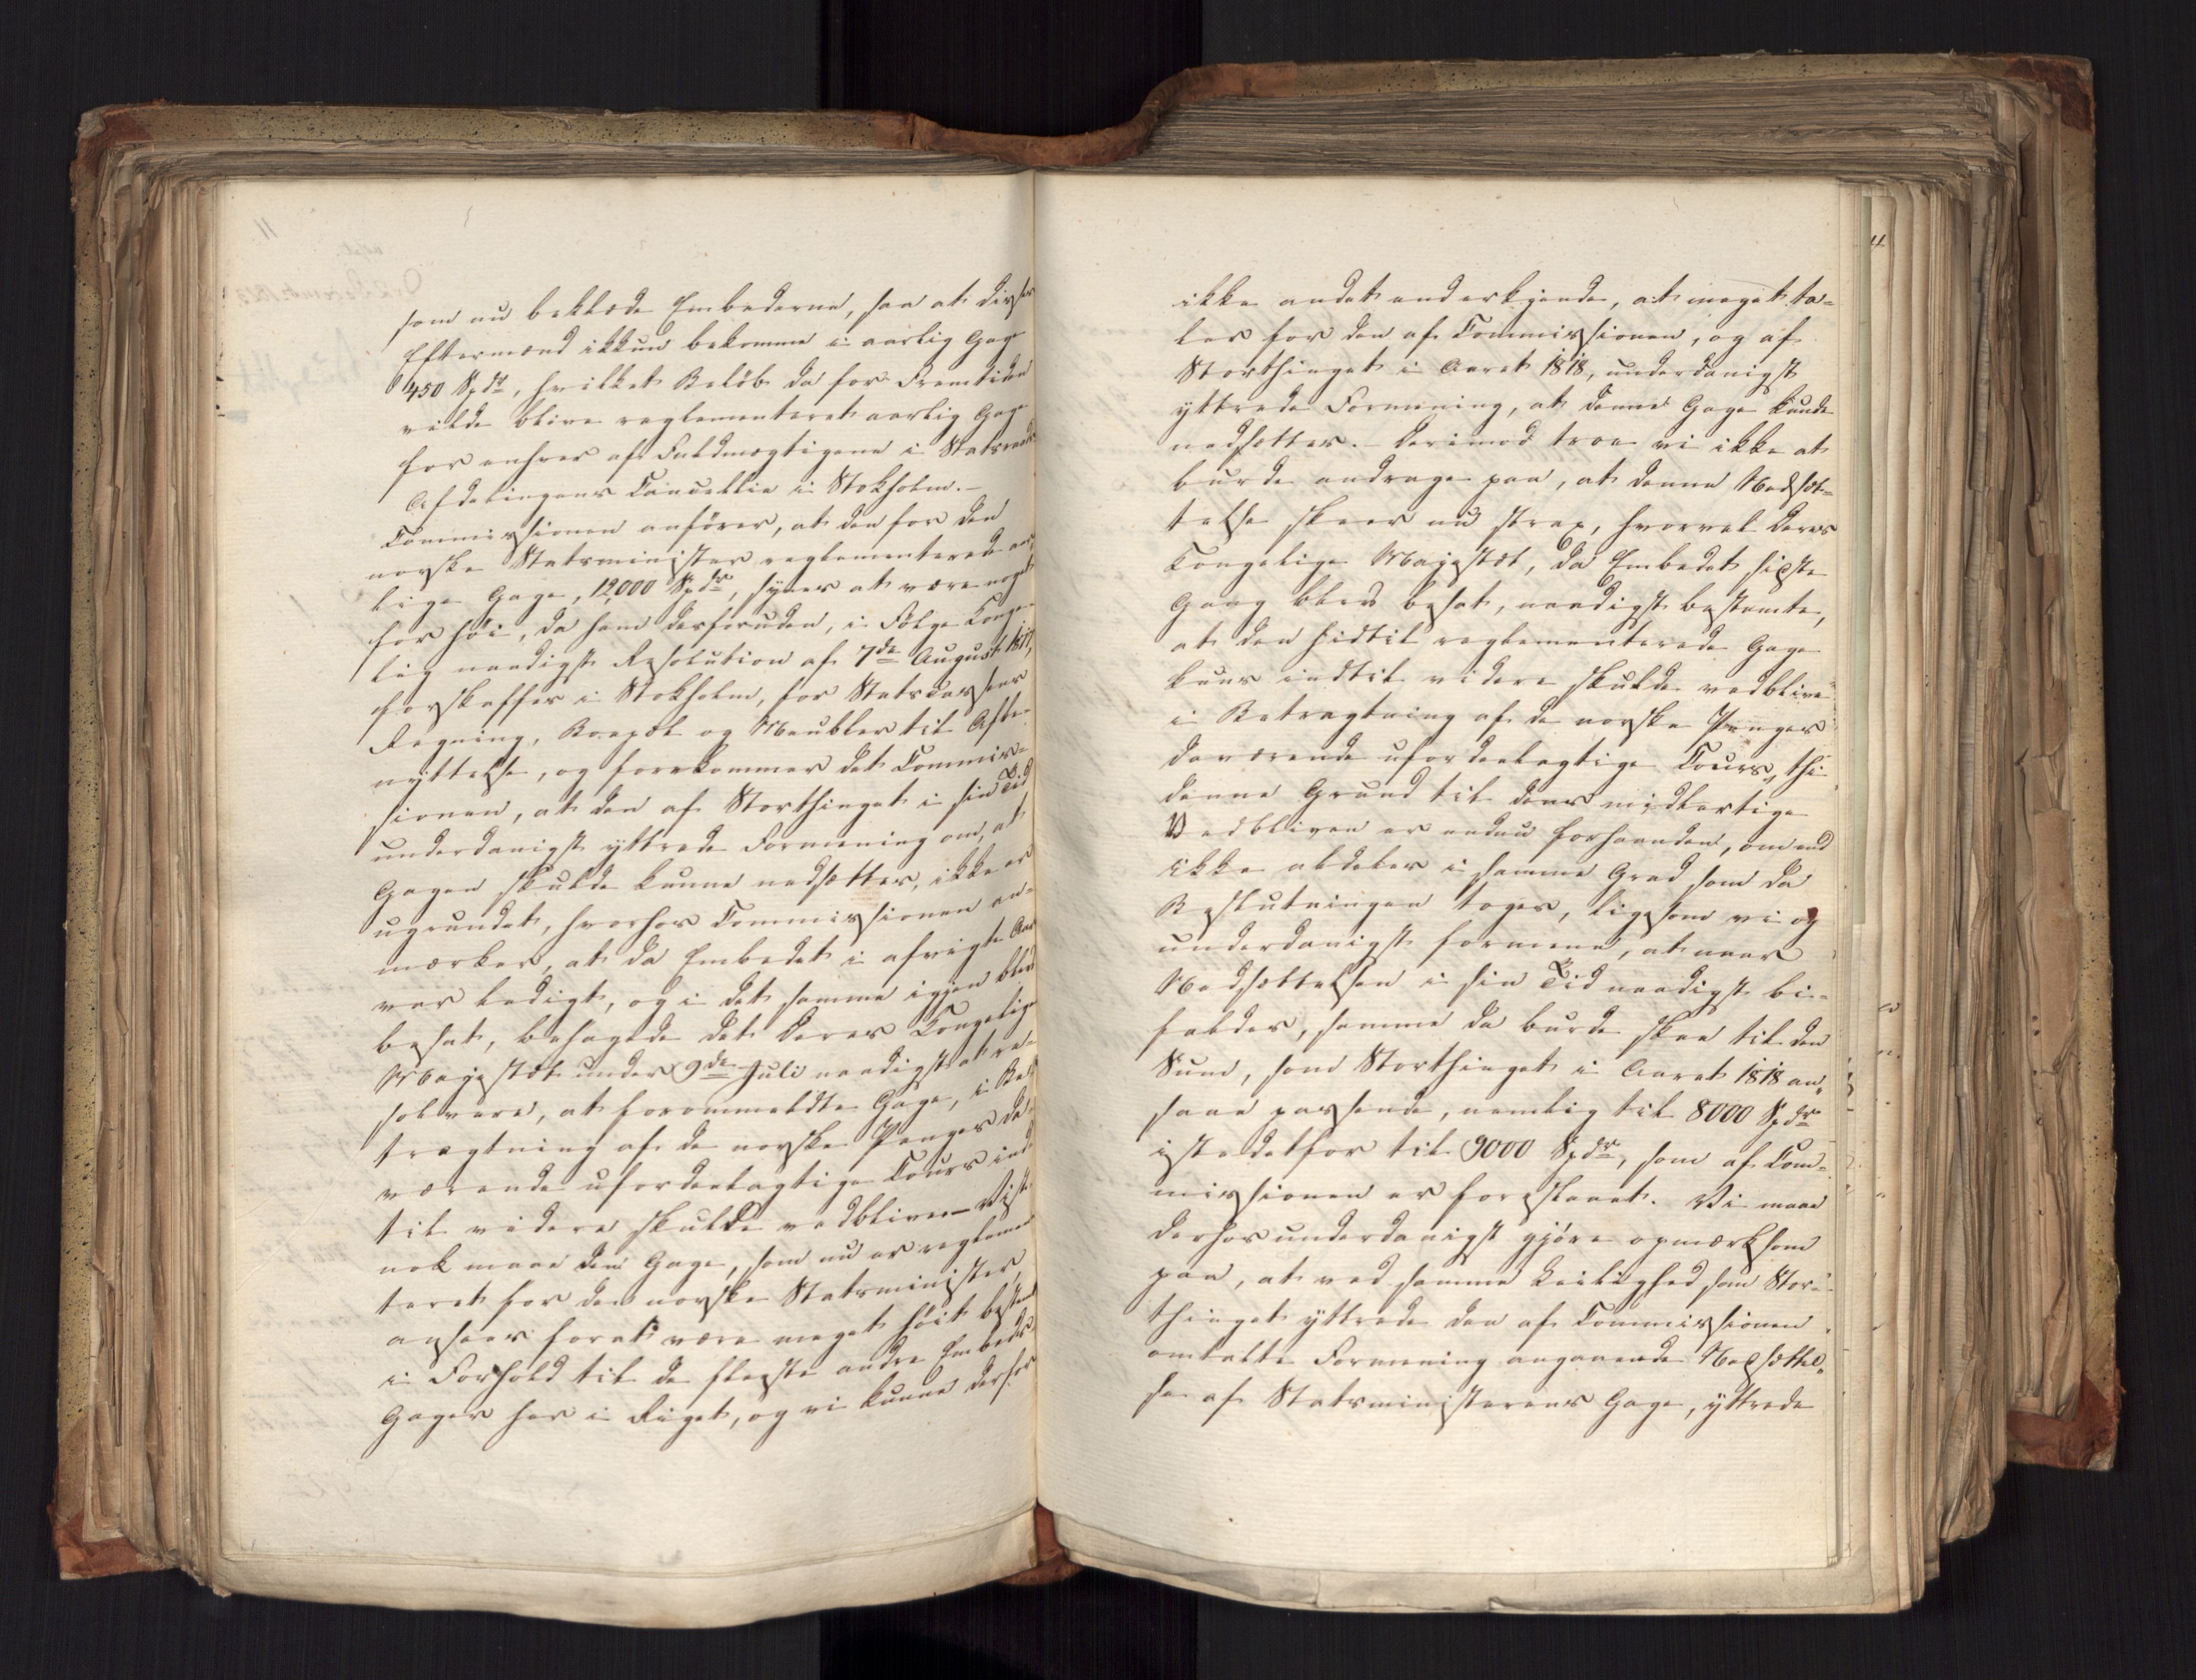 som nu beklæde Embederne, saa at disses
Eftermænd ikkun bekomme i aarlig Gage
450 Spdr, hvilket Beløb da for Fremtiden
vilde blive reglementeret aarlig Gage
for enhver af Fuldmægtigene i Statsraads
Afdelingens Cancellie i Stokholm.-
Commissionen anfører, at den for den
norske Statsminister reglementerede aar-
lige Gage, 12,000 Spdr, synes at være noget
for høi, da ham desforuden, i Følge Konge-
lig naadigst Resolution af 7de August 1817,
forskaffes i Stokholm, for Statscassens
Regning, Boepæl og Meubler til Afbe-
nyttelse, og forekommer det Commis-
sionen, at den af Storthinget i sin Tid
underdanigst yttrede Formening om, at
Gagen skulde kunne nedsættes, ikke er
ugrundet, hvorhos Commissionen an-
mærker, at da Embedet i afvigte Aar
var ledigt, og i det samme igjen blev
besat, behagede det Deres Kongelige
Majestæt under 9de Juli naadigst at re-
solvere, at forommeldte Gage, i Be-
tragtning af de norske Penges da-
værende ufordeelagtige Cours ind-
til videre skulde vedblive. Vist-
nok maae den Gage, som nu er reglemen-
teret for den norske Statsminister,
ansees forat være meget høit bestemt
i Forhold til de fleste andre Embeds
Gager her i Riget, og vi kunne derfor
4
ikke andet end erkjende, at meget ta-
ler for den af Commissionen, og af
Storthinget i Aaret 1818, underdanigst
yttrede Formening, at denne Gage kunde
nedsættes. - Derimod troe vi ikke at
burde andrage paa, at denne Nedsæt-
telse skeer nu strax, hvorvel Deres
Kongelige Majestæt, da Embedet sidste
Gang blev besat, naadigst bestemte,
at den hidtil reglementerede Gage
kuns indtil videre skulde vedblive
i Betragtning af de norske Penges
daværende ufordeelagtige Cours, thi
denne Grund til dens midlertige
Vedbliven er endnu forhaanden, om end
ikke aldeles i samme Grad som da
Beslutningen toges, ligesom vi og
underdanigst formene, at naar
Nedsættelsen i sin Tid naadigst bi-
faldes, samme da burde skee til den
Sum, som Storthinget i Aaret 1818 an-
saae passende, nemlig til 8000 Spdr
istedetfor til 9000 Spdr, som af Com-
missionen er foreslaaet. Vi maae
derhos underdanigst gjøre opmærksom
paa, at ved samme Leilighed, som Stor-
thinget yttrede den af Commissionen
omtalte Formening angaaende Nedsættel-
se af Statsministerens Gage, yttrede